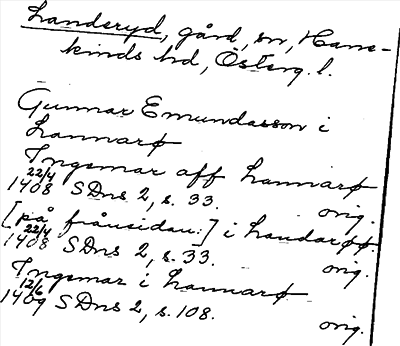 Landeryd, gård, sn, Hane-
kinds hd, Österg. l.
Gunnar Emundasson i
Lannarø
Ingemar aff Lannarø
22/4 1408 SDns 2, s. 33. orig.
[på frånsidan:] i Landarøø.
22/4 1408 SDns 2, s. 33. orig.
Ingemar i Lannarø
12/6 1409 SDns 2, s. 108. orig.